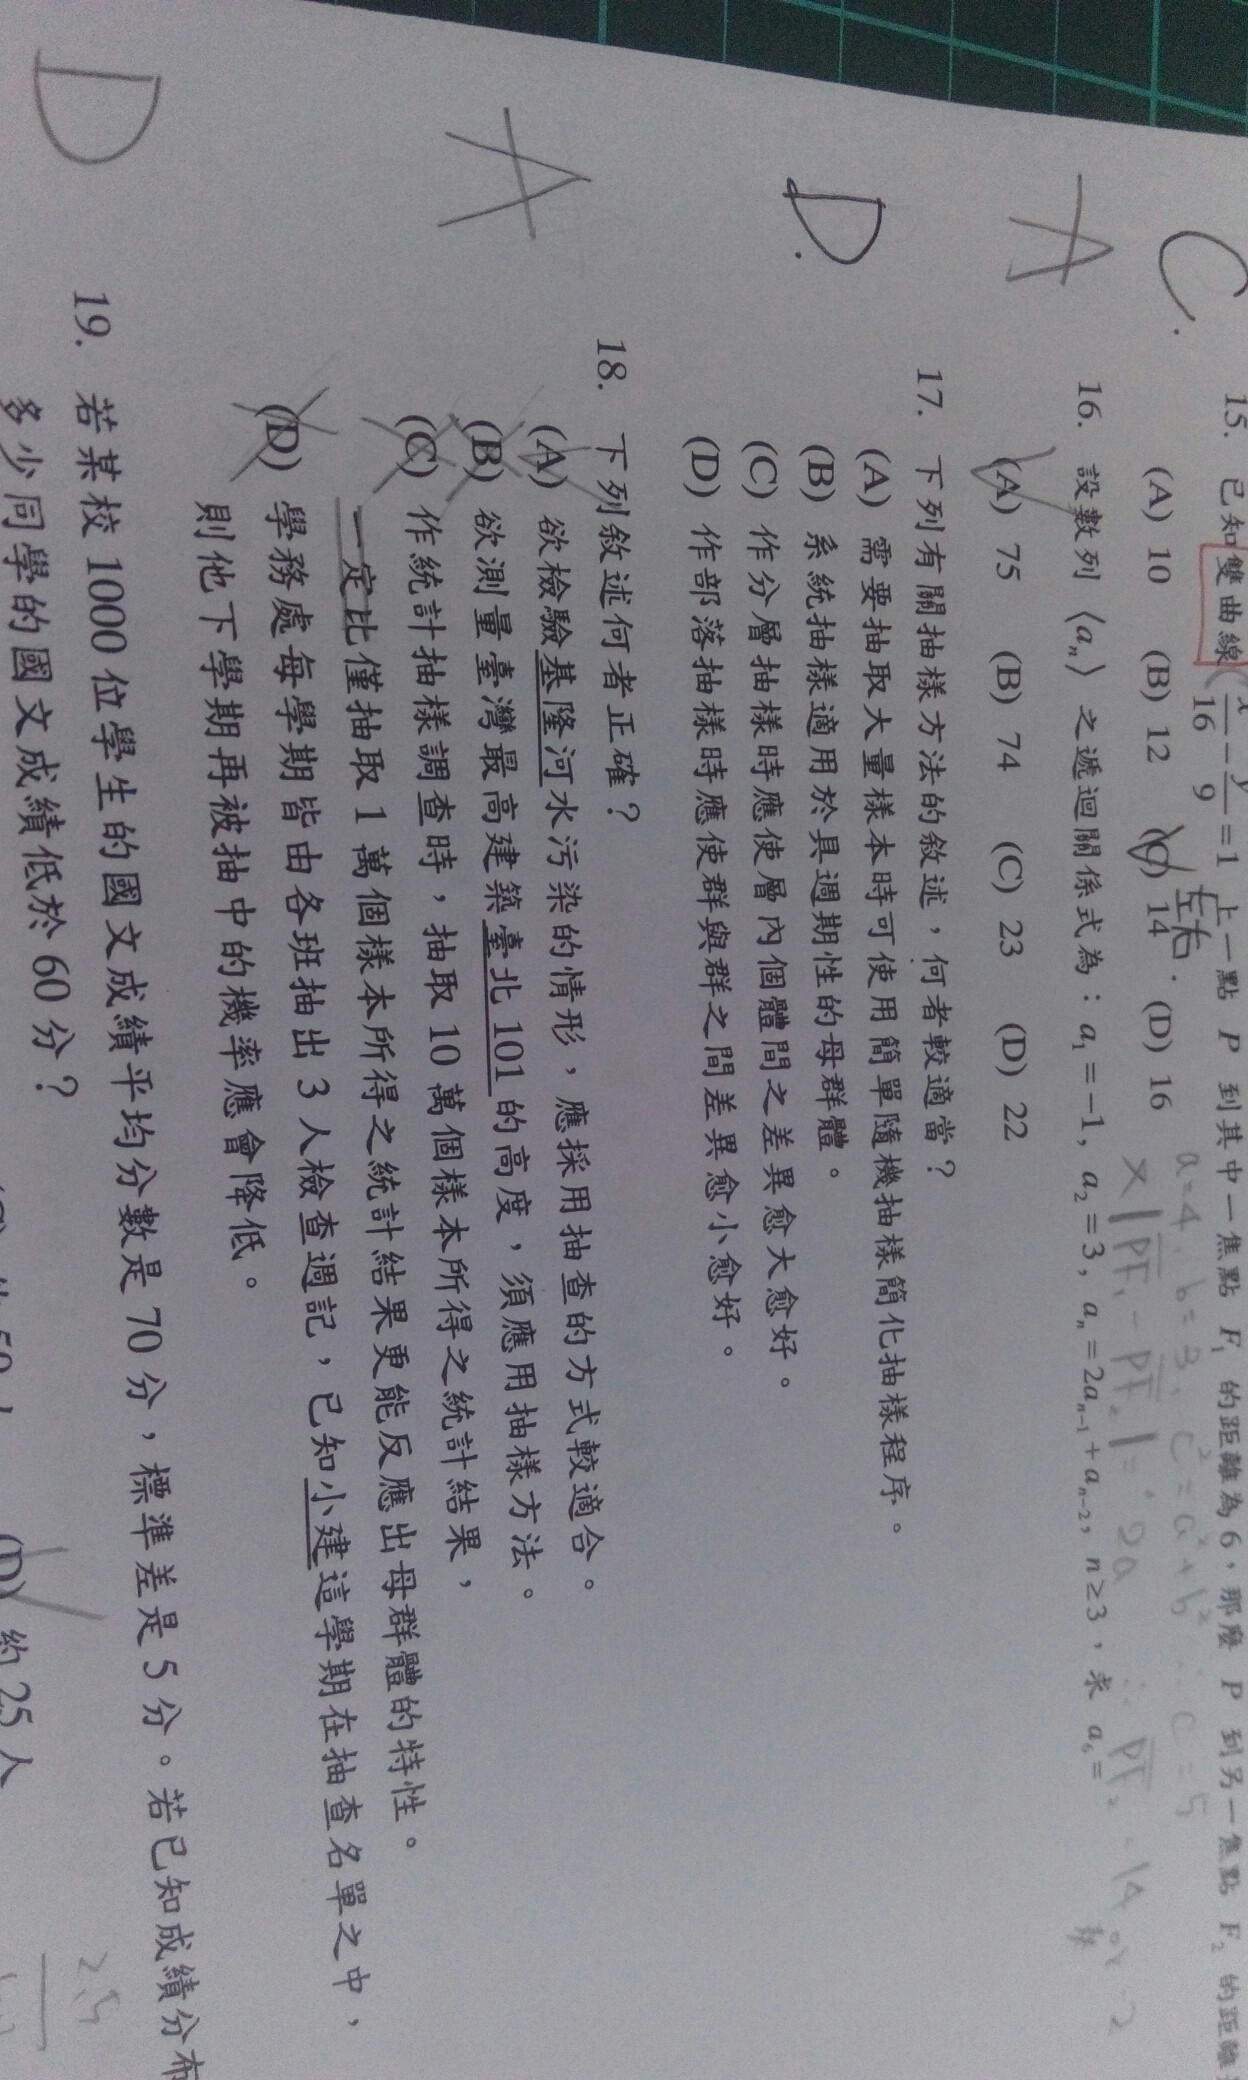 C.
15. 已知雙曲線 x/16 - y/9 = 1 上一點 P 到其中一焦點 F₁ 的距離為 6，那麼 P 到另一焦點 F₂ 的距離
左右.
(A) 10 (B) 12 (C) 14 (D) 16
a=4, b=3, c²=a²+b² ∴ c=5
|PF₁ - PF₂| = 2a ∴ PF₂ = 14 or -2
A
16. 設數列 ⟨aₙ⟩ 之遞迴關係式為：a₁=-1, a₂=3, aₙ=2aₙ₋₁+aₙ₋₂, n≥3，求 a₆=
(A) 75 (B) 74 (C) 23 (D) 22
D.
17. 下列有關抽樣方法的敘述，何者較適當？
(A) 需要抽取大量樣本時可使用簡單隨機抽樣簡化抽樣程序。
(B) 系統抽樣適用於具週期性的母群體。
(C) 作分層抽樣時應使層內個體間之差異愈大愈好。
(D) 作部落抽樣時應使群與群之間差異愈小愈好。
A
18. 下列敘述何者正確？
(A) 欲檢驗基隆河水污染的情形，應採用抽查的方式較適合。
(B) 欲測量臺灣最高建築臺北101的高度，須應用抽樣方法。
(C) 作統計抽樣調查時，抽取10萬個樣本所得之統計結果，
一定比僅抽取1萬個樣本所得之統計結果更能反應出母群體的特性。
(D) 學務處每學期皆由各班抽出3人檢查週記，已知小建這學期在抽查名單之中，
則他下學期再被抽中的機率應會降低。
D
19. 若某校1000位學生的國文成績平均分數是70分，標準差是5分。若已知成績分布
多少同學的國文成績低於60分？
(D) 約25人
2.5